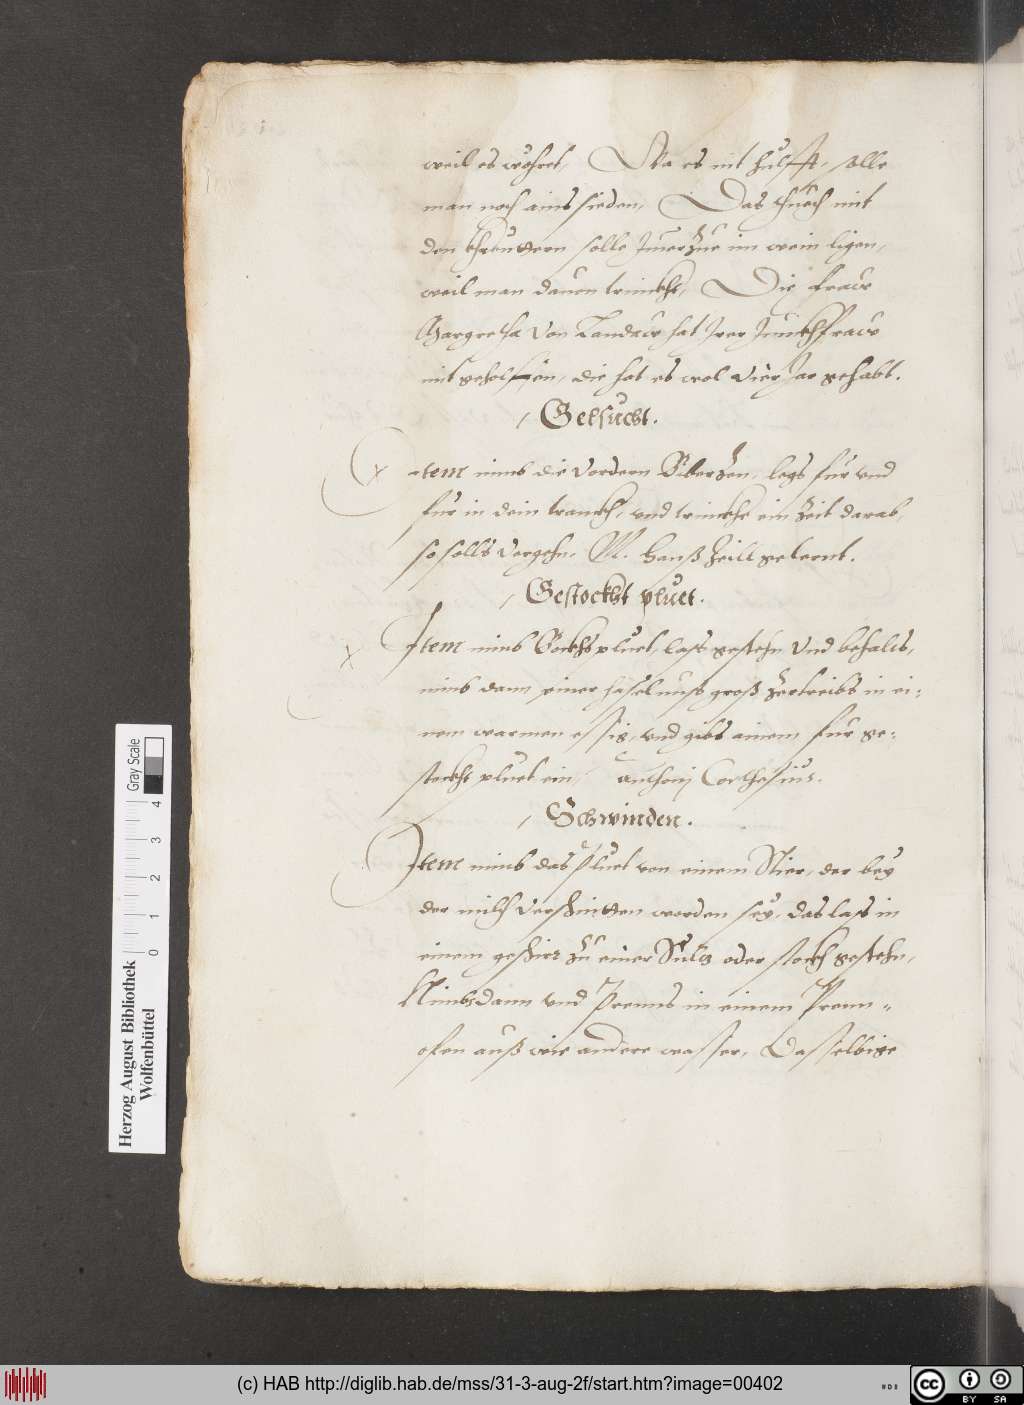 weil es wehret, Wa es nit hulfft, solle
man noch ains sieden, Das thuech mit
den khreuttern solle Jmerzue im wein ligen,
weil man dauon trinckht, Die fraw
Margretha von Landaw hat Jrer Junckhfraw
mit geholffen, die hat es wol vier Jar gehabt.
/ Gelsucht.
x Item nimb die vordern Biberzen, legs fur und
fur in dein tranckh, und trinckhe ein Zeit darab,
so solls vergehn, M. Hanß Zeill gelernt.
/ Gestockht pluet.
x Item nimb Bockhs pluet, lass gestehn und behalts,
nimb dann einer haselnuß groß zertreibs in ei:
nem warmen essig, und gibs ainem fur ge:
stockht pluet ein, Anthonij Corthesius.
/ Schwinden.
Item nimb das Pluet von einem Stier, der bey
der milch verschnitten worden sey, das lass in
einem geschirr zu einer Sultz oder stockh gestehn,
Nimbs dann und Prenns in einem Prenn„
ofen auß wie andere wasser, Dasselbige
Herzog August Bibliothek
Wolfenbüttel
0 1 2 3 4
Gray Scale
(c) HAB http://diglib.hab.de/mss/31-3-aug-2f/start.htm?image=00402
cc BY SA